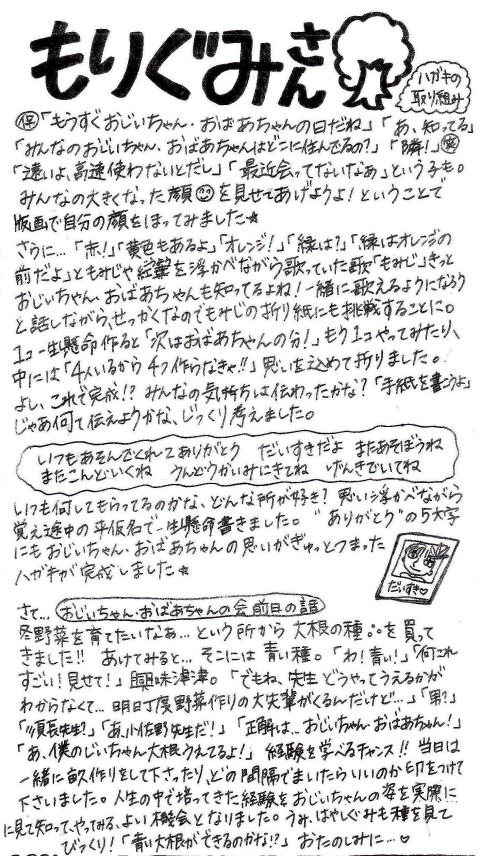 もりぐみさん
ハガキの
取り組み
保「もうすぐおじいちゃん・おばあちゃんの日だね」「あ、知ってる」
「みんなのおじいちゃん、おばあちゃんはどこに住んでるの?」「隣!」
「遠いよ、高速使わないとだし」「最近会ってないなぁ」という子も。
みんなの大きくなった顔を見せてあげようよ!ということで
版画で自分の顔をほってみました★
さらに…「赤!」「黄色もあるよ」「オレンジ!」「緑は?」「緑はオレンジの
前だよ」ともみじや紅葉を浮かべながら歌っていた歌「もみじ」きっと
おじいちゃん、おばあちゃんも知ってるよね!一緒に歌えるようになろう
と話しながら、せっかくなのでもみじの折り紙にも挑戦することに。
1コ一生懸命作ると「次はおばあちゃんの分!」もう1コやってみたり、
中には「4人いるから4つ作らなきゃ!!」思いを込めて折りました。
よし、これで完成!?みんなの気持ちは伝わったかな?「手紙を書こうよ」
じゃあ何て伝えようかな、じっくり考えました。
いつもあそんでくれてありがとう だいすきだよ またあそぼうね
またこんどいくね うんどうかいみにきてね げんきでいてね
いつも何してもらってるのかな、どんな所が好き?思い浮かべながら
覚え途中の平仮名で一生懸命書きました。"ありがとう"の5文字
にもおじいちゃん、おばあちゃんの思いがぎゅっとつまった
ハガキが完成しました★
だいすき♡
さて…おじいちゃん・おばあちゃんの会前日の話
冬野菜を育てたいなぁ…という所から大根の種を買って
きました!!あけてみると…そこには青い種。「わ!青い!」「何これ
すごい!見せて!」興味津津。「でもね、先生どうやってうえるかが
わからなくて…明日丁度野菜作りの大先輩がくるんだけど…」「里?」
「園長先生?」「あ、小佐野先生だ!」「正解は…おじいちゃんおばあちゃん!」
「あ、僕のじいちゃん大根うえてるよ!」経験を学べるチャンス!!当日は
一緒に畝作りをして下さったり、どの間隔でまいたらいいのか印をつけて
下さいました。人生の中で培ってきた経験をおじいちゃんの姿を実際に
見て知って、やってみる、よい機会となりました。うみ、はやしぐみも種を見て
びっくり!「青い大根ができるのかな!?」おたのしみに…♡